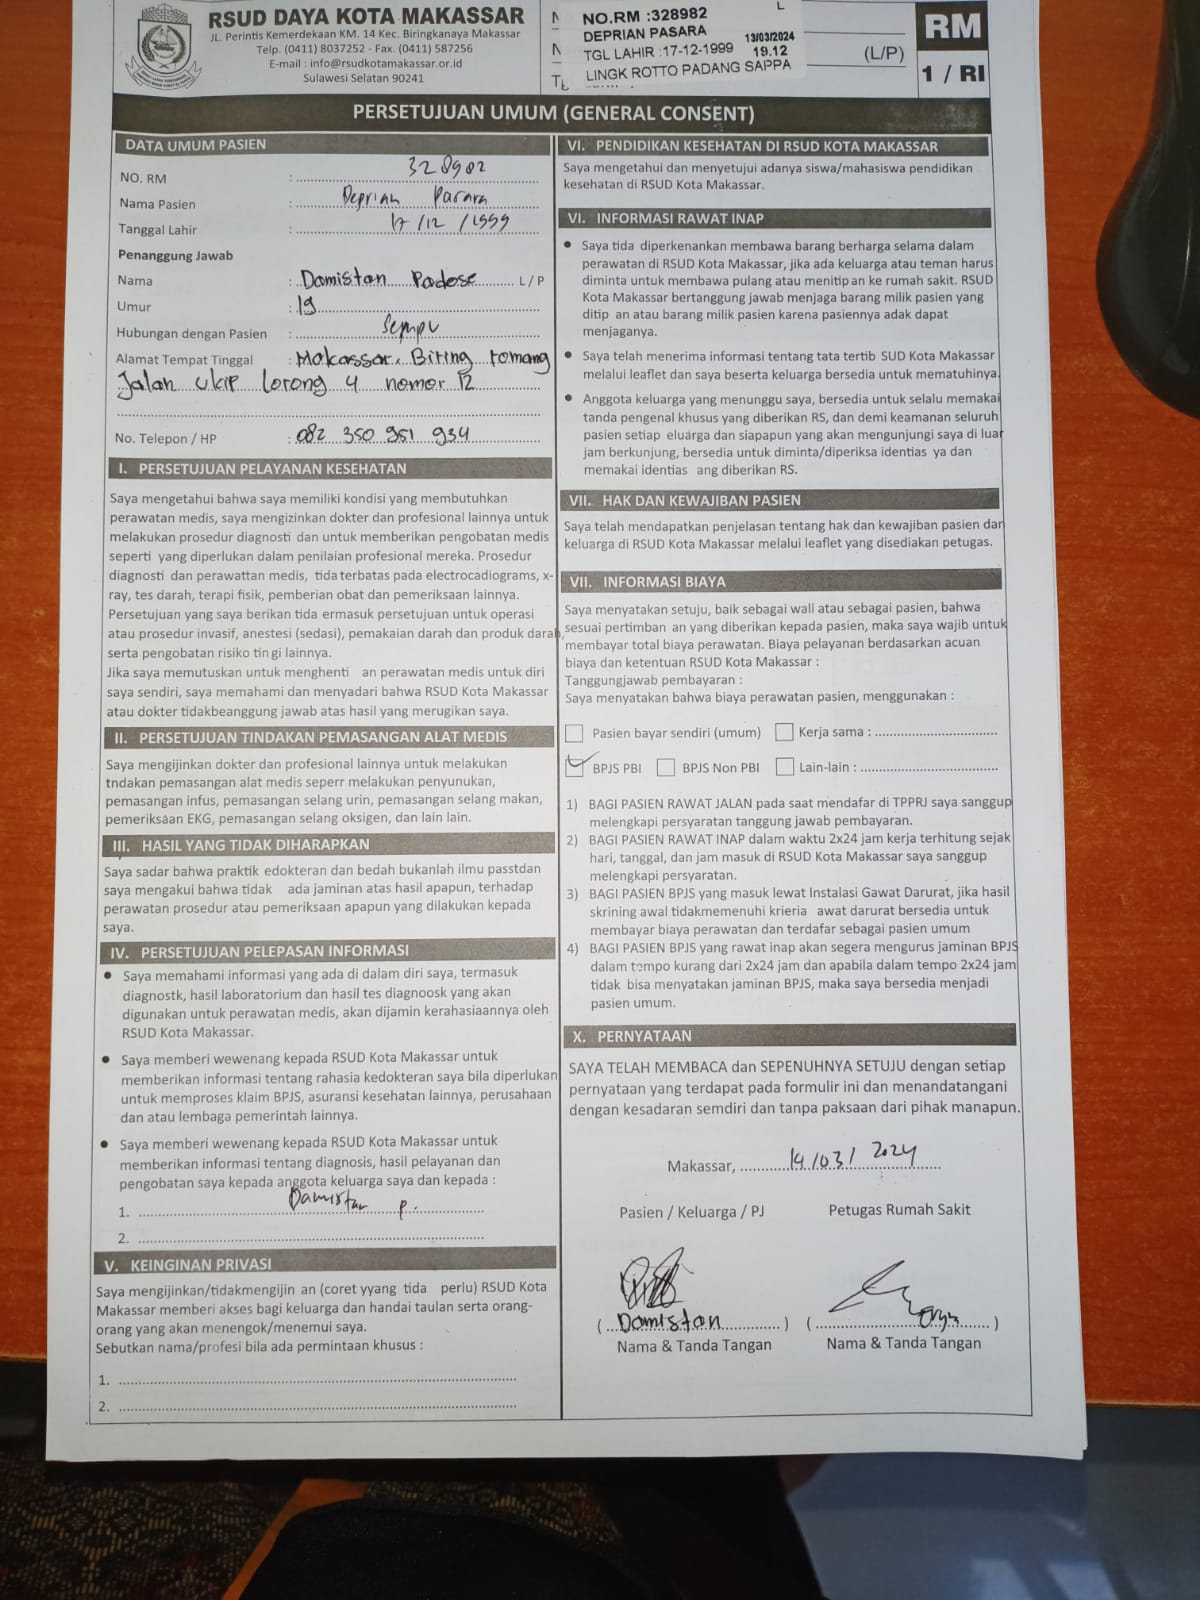 RSUD DAYA KOTA MAKASSAR
JL. Perintis Kemerdekaan KM. 14 Kec. Biringkanaya Makassar
Telp. (0411) 8037252 - Fax. (0411) 587256
E-mail : info@rsudkotamakassar.or.id
Sulawesi Selatan 90241
L
NO.RM :328982
DEPRIAN PASARA 13/03/2024
TGL LAHIR :17-12-1999 19.12
LINGK ROTTO PADANG SAPPA
(L/P)
RM
1 / RI
PERSETUJUAN UMUM (GENERAL CONSENT)
DATA UMUM PASIEN
NO. RM : 328982
Nama Pasien : Deprian Pasara
Tanggal Lahir : 17/12/1999
Penanggung Jawab
Nama : Damistan Padose L/P
Umur : 19
Hubungan dengan Pasien : Sempu
Alamat Tempat Tinggal : Makassar. Biring romang
Jalan ukip lorong 4 nomor 12
No. Telepon / HP : 082 350 951 934
I. PERSETUJUAN PELAYANAN KESEHATAN
Saya mengetahui bahwa saya memiliki kondisi yang membutuhkan
perawatan medis, saya mengizinkan dokter dan profesional lainnya untuk
melakukan prosedur diagnosti dan untuk memberikan pengobatan medis
seperti yang diperlukan dalam penilaian profesional mereka. Prosedur
diagnosti dan perawattan medis, tida terbatas pada electrocadiograms, x-
ray, tes darah, terapi fisik, pemberian obat dan pemeriksaan lainnya.
Persetujuan yang saya berikan tida ermasuk persetujuan untuk operasi
atau prosedur invasif, anestesi (sedasi), pemakaian darah dan produk darah,
serta pengobatan risiko tin gi lainnya.
Jika saya memutuskan untuk menghenti an perawatan medis untuk diri
saya sendiri, saya memahami dan menyadari bahwa RSUD Kota Makassar
atau dokter tidakbeanggung jawab atas hasil yang merugikan saya.
II. PERSETUJUAN TINDAKAN PEMASANGAN ALAT MEDIS
Saya mengijinkan dokter dan profesional lainnya untuk melakukan
tndakan pemasangan alat medis seperr melakukan penyunukan,
pemasangan infus, pemasangan selang urin, pemasangan selang makan,
pemeriksaan EKG, pemasangan selang oksigen, dan lain lain.
III. HASIL YANG TIDAK DIHARAPKAN
Saya sadar bahwa praktik edokteran dan bedah bukanlah ilmu passtdan
saya mengakui bahwa tidak ada jaminan atas hasil apapun, terhadap
perawatan prosedur atau pemeriksaan apapun yang dilakukan kepada
saya.
IV. PERSETUJUAN PELEPASAN INFORMASI
• Saya memahami informasi yang ada di dalam diri saya, termasuk
diagnostk, hasil laboratorium dan hasil tes diagnoosk yang akan
digunakan untuk perawatan medis, akan dijamin kerahasiaannya oleh
RSUD Kota Makassar.
• Saya memberi wewenang kepada RSUD Kota Makassar untuk
memberikan informasi tentang rahasia kedokteran saya bila diperlukan
untuk memproses klaim BPJS, asuransi kesehatan lainnya, perusahaan
dan atau lembaga pemerintah lainnya.
• Saya memberi wewenang kepada RSUD Kota Makassar untuk
memberikan informasi tentang diagnosis, hasil pelayanan dan
pengobatan saya kepada anggota keluarga saya dan kepada :
1. Damistan P.
2.
V. KEINGINAN PRIVASI
Saya mengijinkan/tidakmengijin an (coret yyang tida perlu) RSUD Kota
Makassar memberi akses bagi keluarga dan handai taulan serta orang-
orang yang akan menengok/menemui saya.
Sebutkan nama/profesi bila ada permintaan khusus :
1.
2.
VI. PENDIDIKAN KESEHATAN DI RSUD KOTA MAKASSAR
Saya mengetahui dan menyetujui adanya siswa/mahasiswa pendidikan
kesehatan di RSUD Kota Makassar.
VI. INFORMASI RAWAT INAP
• Saya tida diperkenankan membawa barang berharga selama dalam
perawatan di RSUD Kota Makassar, jika ada keluarga atau teman harus
diminta untuk membawa pulang atau menitip an ke rumah sakit. RSUD
Kota Makassar bertanggung jawab menjaga barang milik pasien yang
ditip an atau barang milik pasien karena pasiennya adak dapat
menjaganya.
• Saya telah menerima informasi tentang tata tertib SUD Kota Makassar
melalui leaflet dan saya beserta keluarga bersedia untuk mematuhinya.
• Anggota keluarga yang menunggu saya, bersedia untuk selalu memakai
tanda pengenal khusus yang diberikan RS, dan demi keamanan seluruh
pasien setiap eluarga dan siapapun yang akan mengunjungi saya di luar
jam berkunjung, bersedia untuk diminta/diperiksa identias ya dan
memakai identias ang diberikan RS.
VII. HAK DAN KEWAJIBAN PASIEN
Saya telah mendapatkan penjelasan tentang hak dan kewajiban pasien dan
keluarga di RSUD Kota Makassar melalui leaflet yang disediakan petugas.
VII. INFORMASI BIAYA
Saya menyatakan setuju, baik sebagai wali atau sebagai pasien, bahwa
sesuai pertimban an yang diberikan kepada pasien, maka saya wajib untuk
membayar total biaya perawatan. Biaya pelayanan berdasarkan acuan
biaya dan ketentuan RSUD Kota Makassar :
Tanggungjawab pembayaran :
Saya menyatakan bahwa biaya perawatan pasien, menggunakan :
Pasien bayar sendiri (umum) Kerja sama :
BPJS PBI BPJS Non PBI Lain-lain :
1) BAGI PASIEN RAWAT JALAN pada saat mendafar di TPPRJ saya sanggup
melengkapi persyaratan tanggung jawab pembayaran.
2) BAGI PASIEN RAWAT INAP dalam waktu 2x24 jam kerja terhitung sejak
hari, tanggal, dan jam masuk di RSUD Kota Makassar saya sanggup
melengkapi persyaratan.
3) BAGI PASIEN BPJS yang masuk lewat Instalasi Gawat Darurat, jika hasil
skrining awal tidakmemenuhi krieria awat darurat bersedia untuk
membayar biaya perawatan dan terdafar sebagai pasien umum
4) BAGI PASIEN BPJS yang rawat inap akan segera mengurus jaminan BPJS
dalam tempo kurang dari 2x24 jam dan apabila dalam tempo 2x24 jam
tidak bisa menyatakan jaminan BPJS, maka saya bersedia menjadi
pasien umum.
X. PERNYATAAN
SAYA TELAH MEMBACA dan SEPENUHNYA SETUJU dengan setiap
pernyataan yang terdapat pada formulir ini dan menandatangani
dengan kesadaran semdiri dan tanpa paksaan dari pihak manapun.
Makassar, 14/03/2024
Pasien / Keluarga / PJ Petugas Rumah Sakit
(Damistan) ( )
Nama & Tanda Tangan Nama & Tanda Tangan